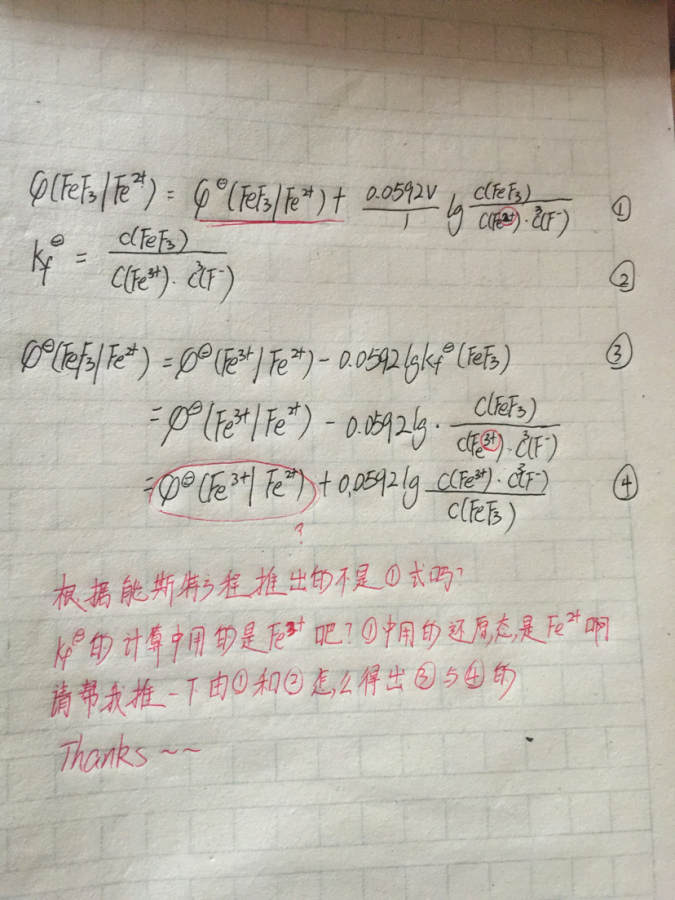 φ(FeF₃/Fe²⁺) = φ^⊖(FeF₃/Fe²⁺) + 0.0592V/1 lg c(FeF₃)/(c(Fe²⁺)·c³(F⁻)) ①
Kf^⊖ = c(FeF₃)/(c(Fe³⁺)·c³(F⁻)) ②
φ^⊖(FeF₃/Fe²⁺) = φ^⊖(Fe³⁺/Fe²⁺) - 0.0592lgKf^⊖(FeF₃) ③
= φ^⊖(Fe³⁺/Fe²⁺) - 0.0592lg · c(FeF₃)/(c(Fe³⁺)·c³(F⁻))
= φ^⊖(Fe³⁺/Fe²⁺) + 0.0592lg c(Fe³⁺)·c³(F⁻)/c(FeF₃) ④
?
根据能斯特方程推出的不是①式吗?
Kf^⊖的计算中用的是Fe³⁺吧?①中用的还原态是Fe²⁺啊
请帮我推一下由①和②怎么得出③与④的
Thanks~~